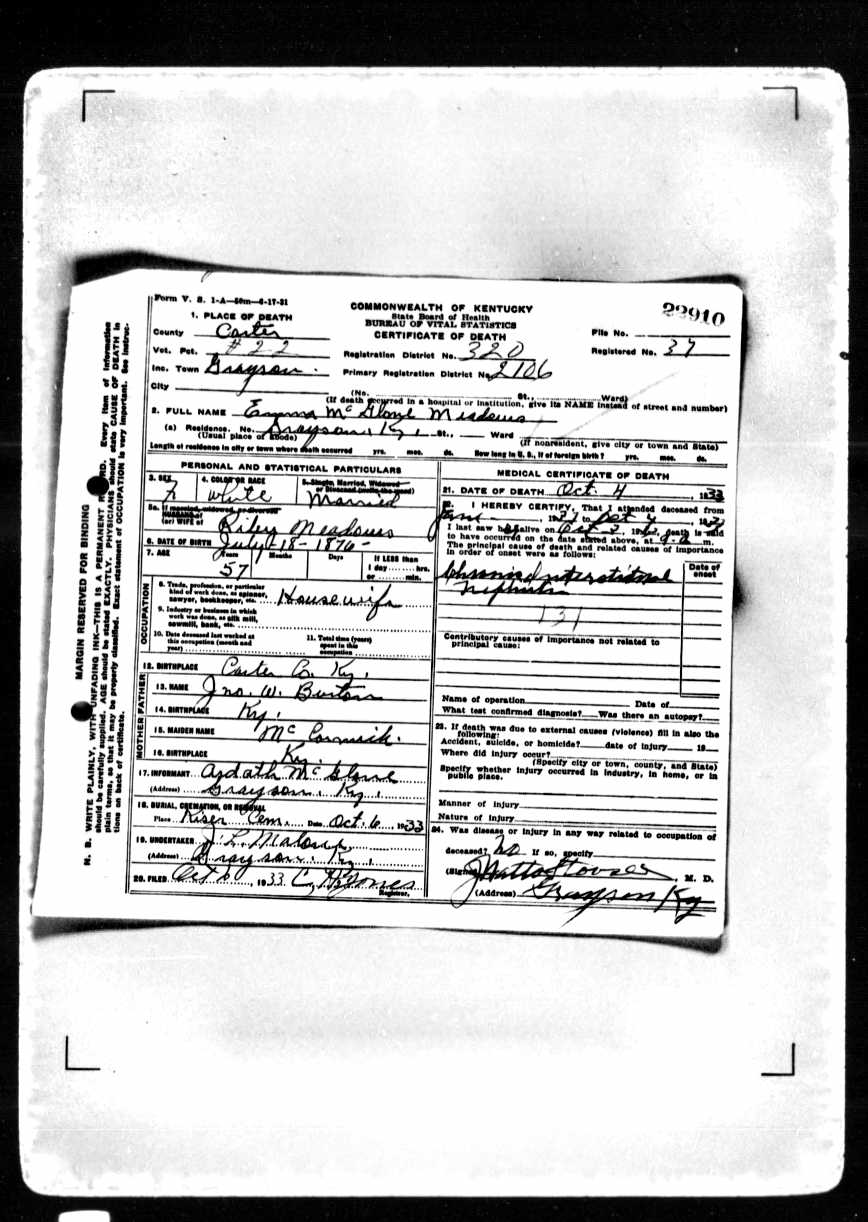 Form V. S. 1-A—50m—6-17-31
22910
COMMONWEALTH OF KENTUCKY
State Board of Health
BUREAU OF VITAL STATISTICS
CERTIFICATE OF DEATH
1. PLACE OF DEATH
County Carter
Vot. Pct. #22
Inc. Town Grayson.
City
File No.
Registered No. 37
Registration District No. 320
Primary Registration District No. 2106
(No. St., Ward)
(If death occurred in a hospital or institution, give its NAME instead of street and number)
2. FULL NAME Emma McGlone Meadows
(a) Residence. No. Grayson, Ky, St., Ward
(Usual place of abode) (If nonresident, give city or town and State)
Length of residence in city or town where death occurred yrs. mos. ds. How long in U. S., if of foreign birth? yrs. mos. ds.
PERSONAL AND STATISTICAL PARTICULARS
3. SEX F
4. COLOR OR RACE White
5. Single, Married, Widowed or Divorced (write the word) Married
5a. If married, widowed, or divorced
HUSBAND of
(or) WIFE of Riley Meadows
6. DATE OF BIRTH July-18-1876-
7. AGE Years Months Days If LESS than
1 day hrs.
or min.
57
OCCUPATION
8. Trade, profession, or particular
kind of work done, as spinner,
sawyer, bookkeeper, etc. Housewife
9. Industry or business in which
work was done, as silk mill,
sawmill, bank, etc.
10. Date deceased last worked at
this occupation (month and
year)
11. Total time (years)
spent in this
occupation
12. BIRTHPLACE Carter Co. Ky.
FATHER
13. NAME Jno. W. Burton
14. BIRTHPLACE Ky.
MOTHER
15. MAIDEN NAME McCormick.
16. BIRTHPLACE Ky.
17. INFORMANT Ardath McGlone
(Address) Grayson. Ky.
18. BURIAL, CREMATION, OR REMOVAL
Place Kiser Cem. Date Oct. 6, 1933
19. UNDERTAKER J. L. Malone
(Address) Grayson. Ky.
20. FILED Oct 6, 1933 Jones
Registrar.
MEDICAL CERTIFICATE OF DEATH
21. DATE OF DEATH Oct. 4, 1933
22. I HEREBY CERTIFY, That I attended deceased from
I last saw alive on death is said
to have occurred on the date stated above, at m.
The principal cause of death and related causes of importance
in order of onset were as follows:
Date of
onset
Chronic interstitial
Nephritis
131
Contributory causes of importance not related to
principal cause:
Name of operation Date of
What test confirmed diagnosis? Was there an autopsy?
23. If death was due to external causes (violence) fill in also the
following:
Accident, suicide, or homicide? date of injury 19
Where did injury occur?
(Specify city or town, county, and State)
Specify whether injury occurred in industry, in home, or in
public place.
Manner of injury
Nature of injury
24. Was disease or injury in any way related to occupation of
deceased? No If so, specify
(Signed) J Watts Stovser, M. D.
(Address) Grayson Ky
MARGIN RESERVED FOR BINDING
N. B. WRITE PLAINLY, WITH UNFADING INK—THIS IS A PERMANENT RECORD. Every item of information
should be carefully supplied. AGE should be stated EXACTLY. PHYSICIANS should state CAUSE OF DEATH in
plain terms, so that it may be properly classified. Exact statement of OCCUPATION is very important. See instruc-
tions on back of certificate.